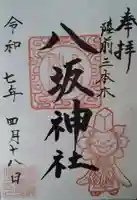 奉拝
陸前二本木
八坂神社
令和七年四月十八日